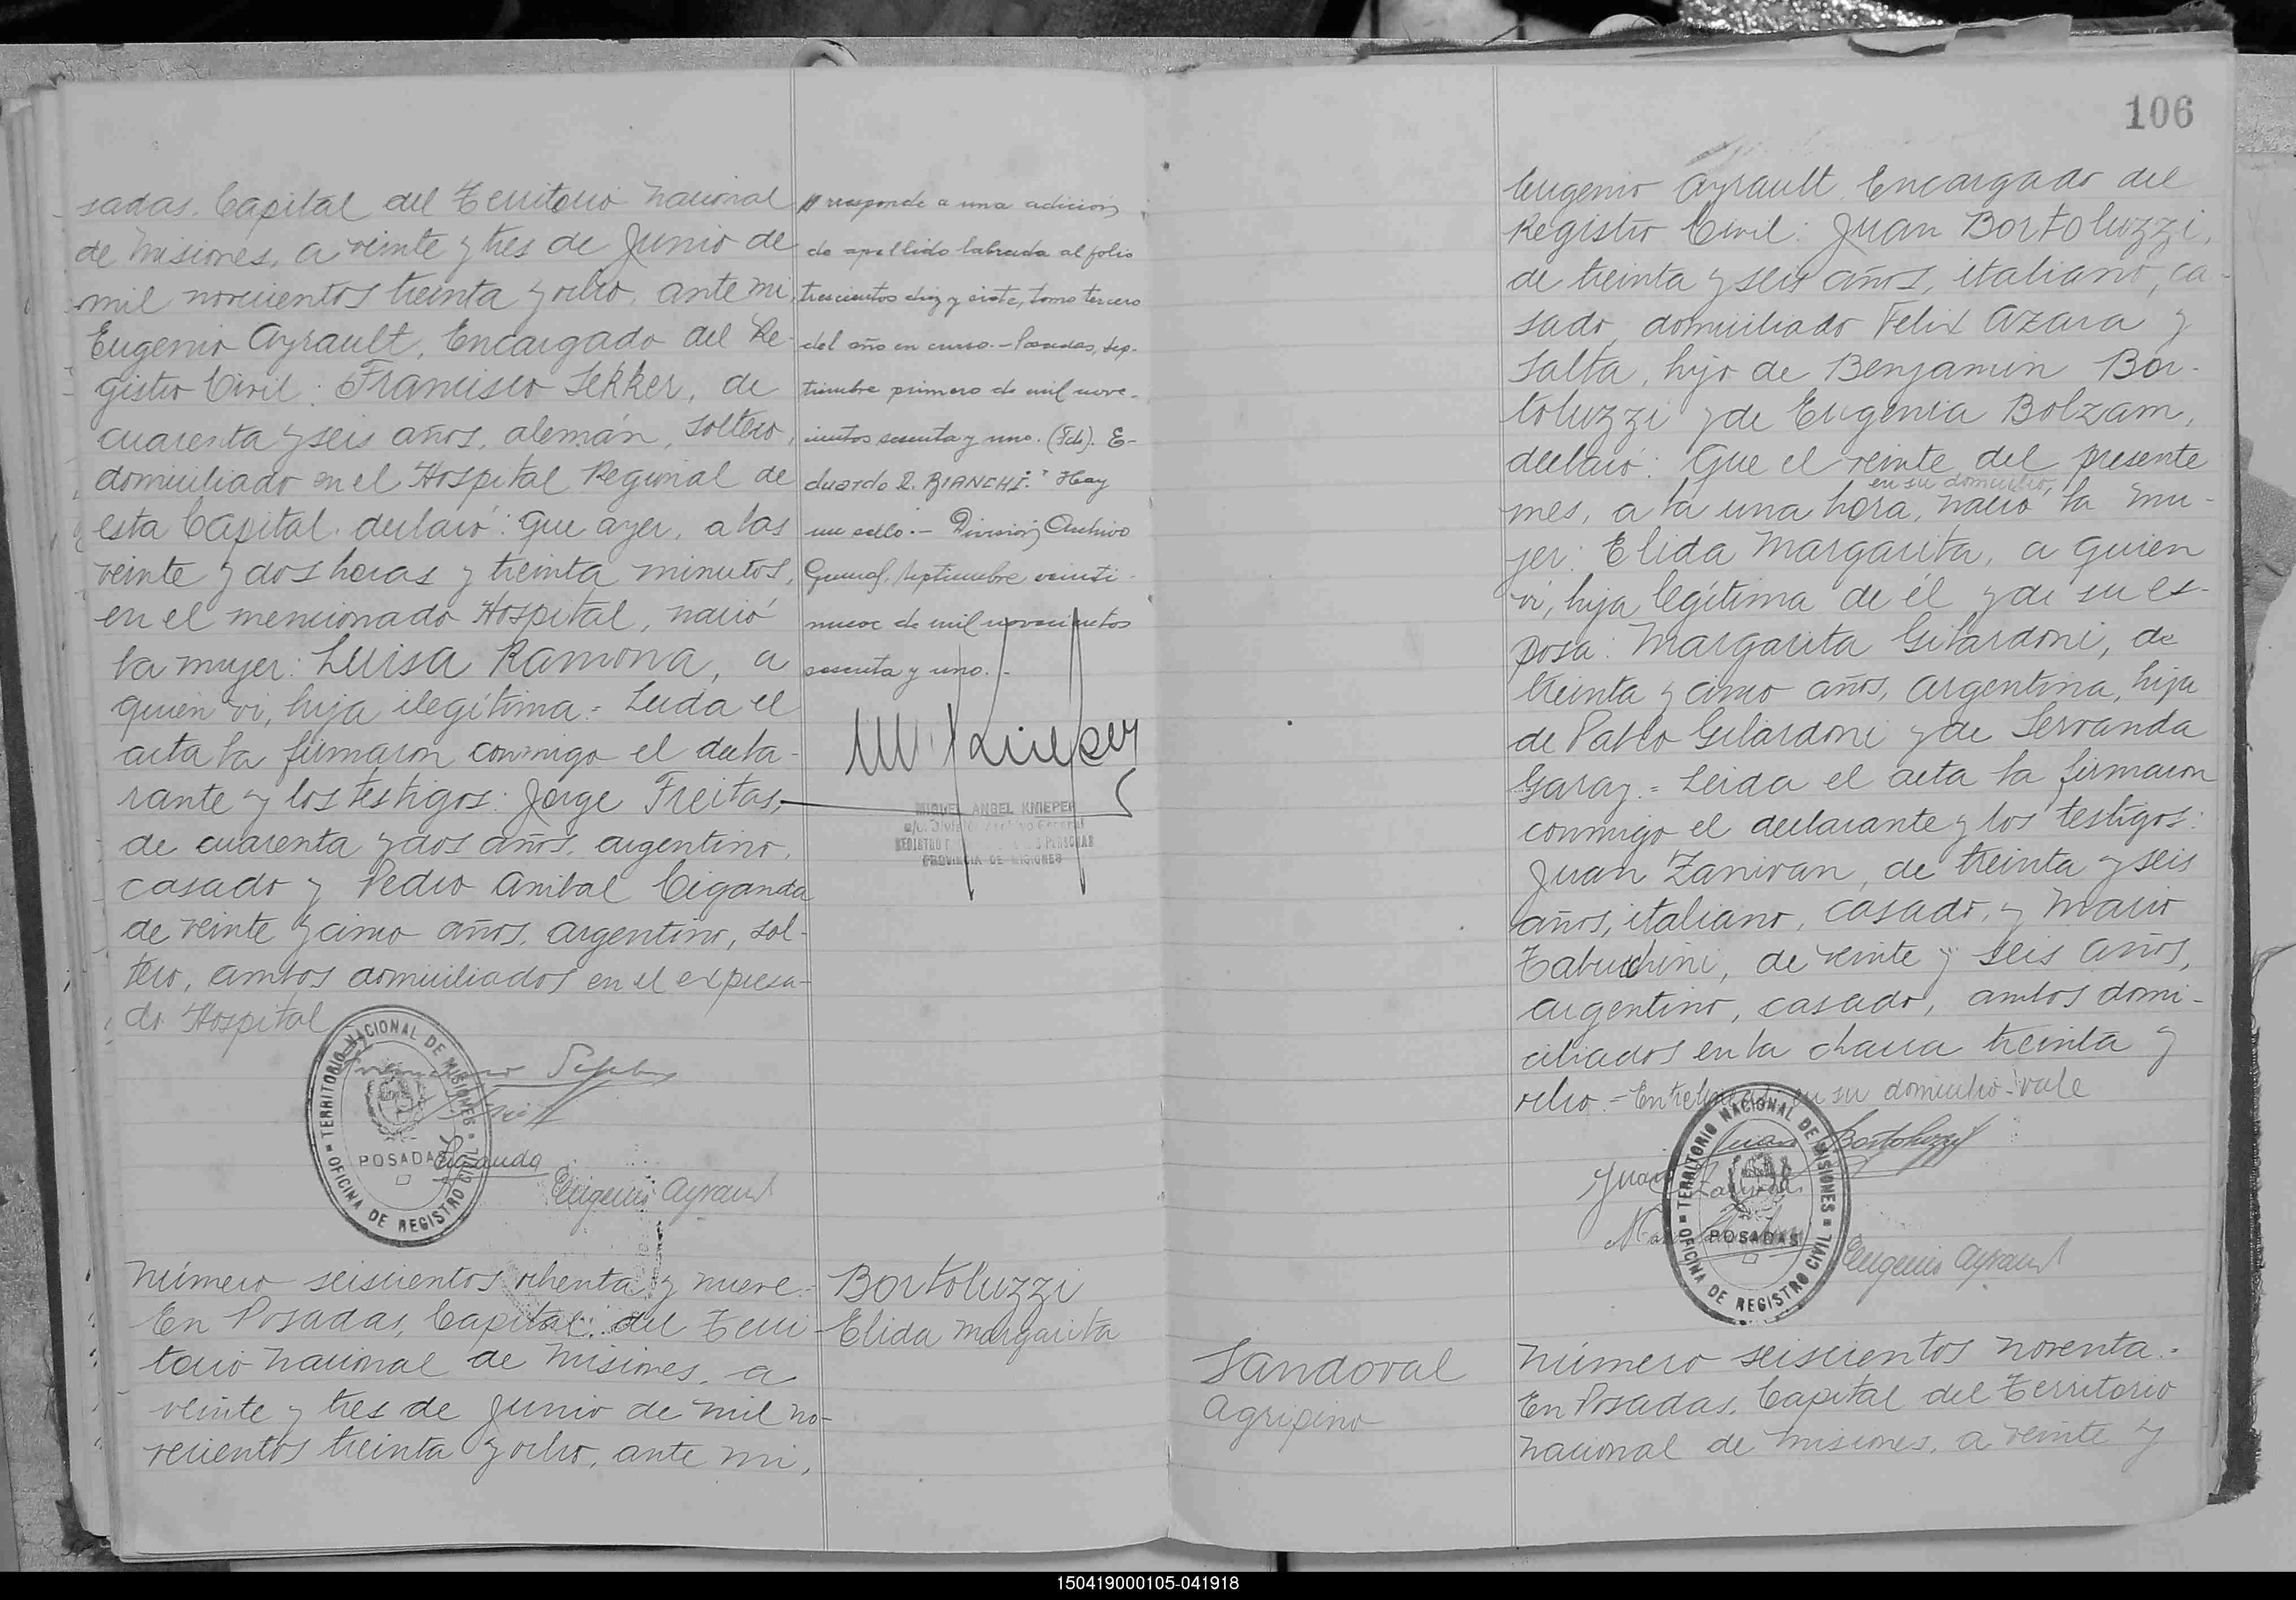 sadas, Capital del Territorio Nacional
de Misiones, a veinte y tres de Junio de
mil novecientos treinta y ocho, ante mi,
Eugenio Ayrault, Encargado del Re-
gistro Civil: Francisco Sekker, de
cuarenta y seis años, alemán, soltero,
domiciliado en el Hospital Regional de
esta Capital, declaró: Que ayer, a las
veinte y dos horas y treinta minutos,
en el mencionado Hospital, nació
la mujer: Luisa Ramona, a
quien vi, hija ilegítima.= Leida el
acta la firmaron conmigo el decla-
rante y los testigos: Jorge Freitas,
de cuarenta y dos años, argentino,
casado y Pedro Anibal Ciganda
de veinte y cinco años, argentino, sol-
tero, ambos domiciliados en el expresa-
do Hospital
TERRITORIO NACIONAL DE MISIONES
POSADAS
OFICINA DE REGISTRO CIVIL
Ciganda
Eugenio Ayrault
Número seiscientos ochenta y nueve.-
En Posadas, Capital del Terri-
torio Nacional de Misiones, a
veinte y tres de Junio de mil no-
vecientos treinta y ocho, ante mi,
// responde a una adición
de apellido labrada al folio
trescientos diez y siete, tomo tercero
del año en curso.- Posadas, sep-
tiembre primero de mil nove-
cientos sesenta y uno. (Fdo). E-
duardo R. BIANCHI." Hay
un sello.- División Archivo
General, septiembre veinti-
nueve de mil novecientos
sesenta y uno.-
M. Knieper
MIGUEL ANGEL KNIEPER
a/c. División Archivo General
REGISTRO PERSONAS
PROVINCIA DE MISIONES
Bortoluzzi
Elida Margarita
106
Eugenio Ayrault Encargado del
Registro Civil: Juan Bortoluzzi,
de treinta y seis años, italiano, ca-
sado, domiciliado Felix Azara y
Salta, hijo de Benjamin Bor-
toluzzi y de Eugenia Bolzam,
declaró: Que el veinte del presente
en su domicilio,
mes, a la una hora, nació la mu-
jer: Elida Margarita, a quien
vi, hija legítima de él y de su es-
posa: Margarita Gilardoni, de
treinta y cinco años, argentina, hija
de Pablo Gilardoni y de Servanda
Garay.= Leida el acta la firmaron
conmigo el declarante y los testigos:
Juan Zanivan, de treinta y seis
años, italiano, casado, y Mario
Tabuchini, de veinte y seis años,
argentino, casado, ambos domi-
ciliados en la chacra treinta y
ocho.= Entrelineado en su domicilio-vale
Juan Bortoluzzi
Juan Zanivan
TERRITORIO NACIONAL DE MISIONES
POSADAS
OFICINA DE REGISTRO CIVIL
Eugenio Ayrault
Sandoval
Agripino
Número seiscientos noventa.=
En Posadas, Capital del Territorio
Nacional de Misiones, a veinte y
150419000105-041918